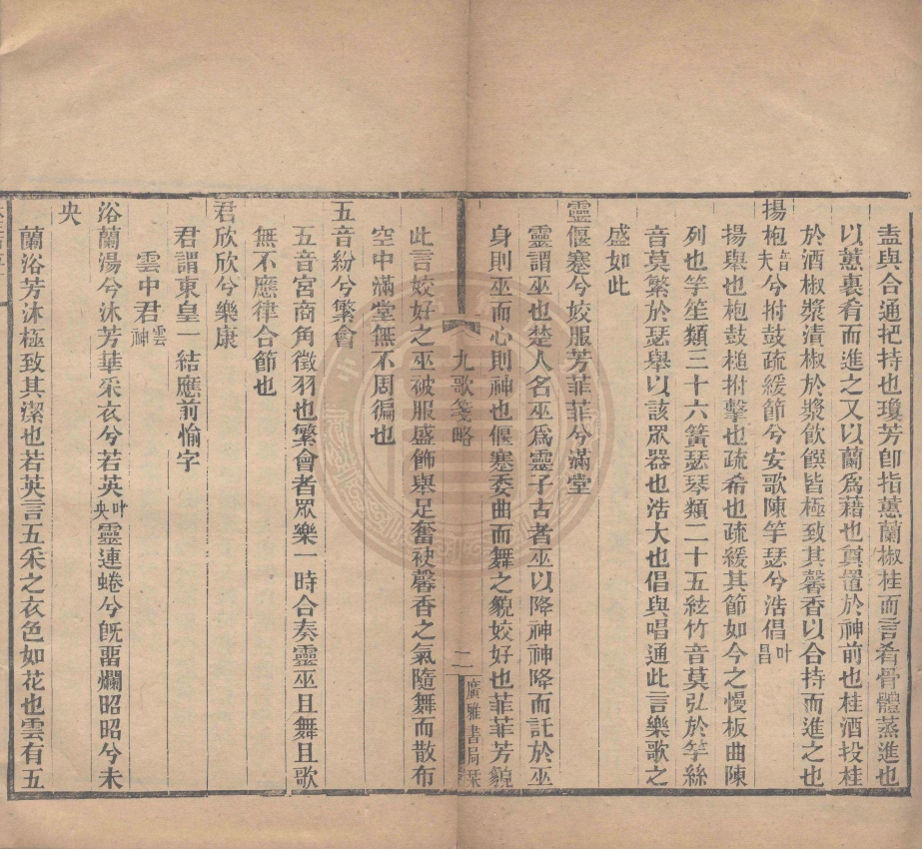 盍與合通把持也瓊芳卽指蕙蘭椒桂而言肴骨體蒸進也
以蕙裹肴而進之又以蘭爲藉也奠置於神前也桂酒投桂
於酒椒漿漬椒於漿飲饌皆極致其馨香以合持而進之也
揚枹音夫兮拊鼓疏緩節兮安歌陳竽瑟兮浩倡叶昌
揚舉也枹鼓槌拊擊也疏希也疏緩其節如今之慢板曲陳
列也竽笙類三十六簧瑟琴類二十五絃竹音莫弘於竽絲
音莫繁於瑟舉以該眾器也浩大也倡與唱通此言樂歌之
盛如此
靈偃蹇兮姣服芳菲菲兮滿堂
靈謂巫也楚人名巫爲靈子古者巫以降神神降而託於巫
身則巫而心則神也偃蹇委曲而舞之貌姣好也菲菲芳貌
九歌箋略
二
廣雅書局栞
此言姣好之巫被服盛飾舉足奮袂馨香之氣隨舞而散布
空中滿堂無不周徧也
五音紛兮繁會
五音宮商角徵羽也繁會者眾樂一時合奏靈巫且舞且歌
無不應律合節也
君欣欣兮樂康
君謂東皇一結應前愉字
雲中君雲神
浴蘭湯兮沐芳華采衣兮若英叶央靈連蜷兮旣畱爛昭昭兮未
央
蘭浴芳沐極致其潔也若英言五采之衣色如花也雲有五